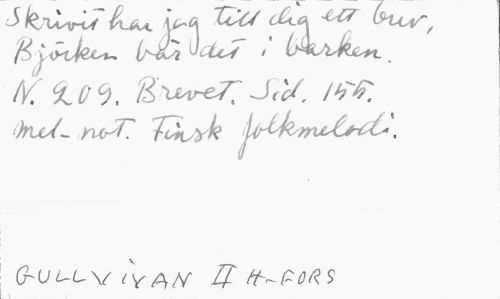 Skrivit har jag till dig ett brev,
Björken bär det i barken.
N. 209. Brevet. Sid. 155.
mel-not. Finsk folkmelodi.
GULLVIVAN II H-FORS